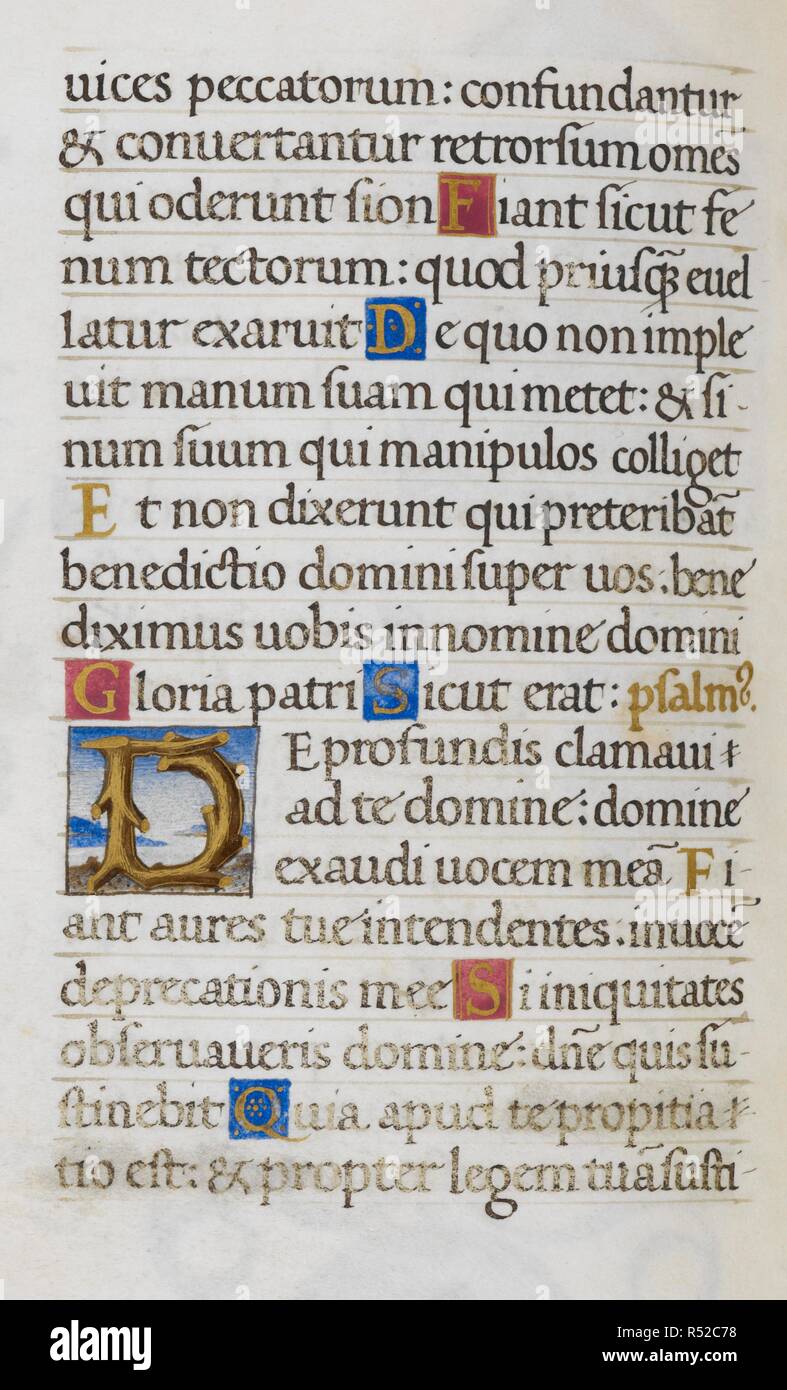 uices peccatorum: confundantur
& conuertantur retrorsum omēs
qui oderunt sion Fiant sicut fe
num tectorum: quod priusqꝫ euel
latur exaruit De quo non imple
uit manum suam qui metet: & si-
num suum qui manipulos colliget
Et non dixerunt qui preteribāt
benedictio domini super uos: bene
diximus uobis in nomine domini
Gloria patri Sicut erat: psalmꝰ.
DE profundis clamaui
ad te domine: domine
exaudi uocem meā Fi-
ant aures tue intendentes: in uocē
deprecationis mee Si iniquitates
obseruaueris domine: dn̄e quis su-
stinebit Quia apud te propitia-
tio est: & propter legem tuā susti-
alamy
Image ID: R52C78
www.alamy.com